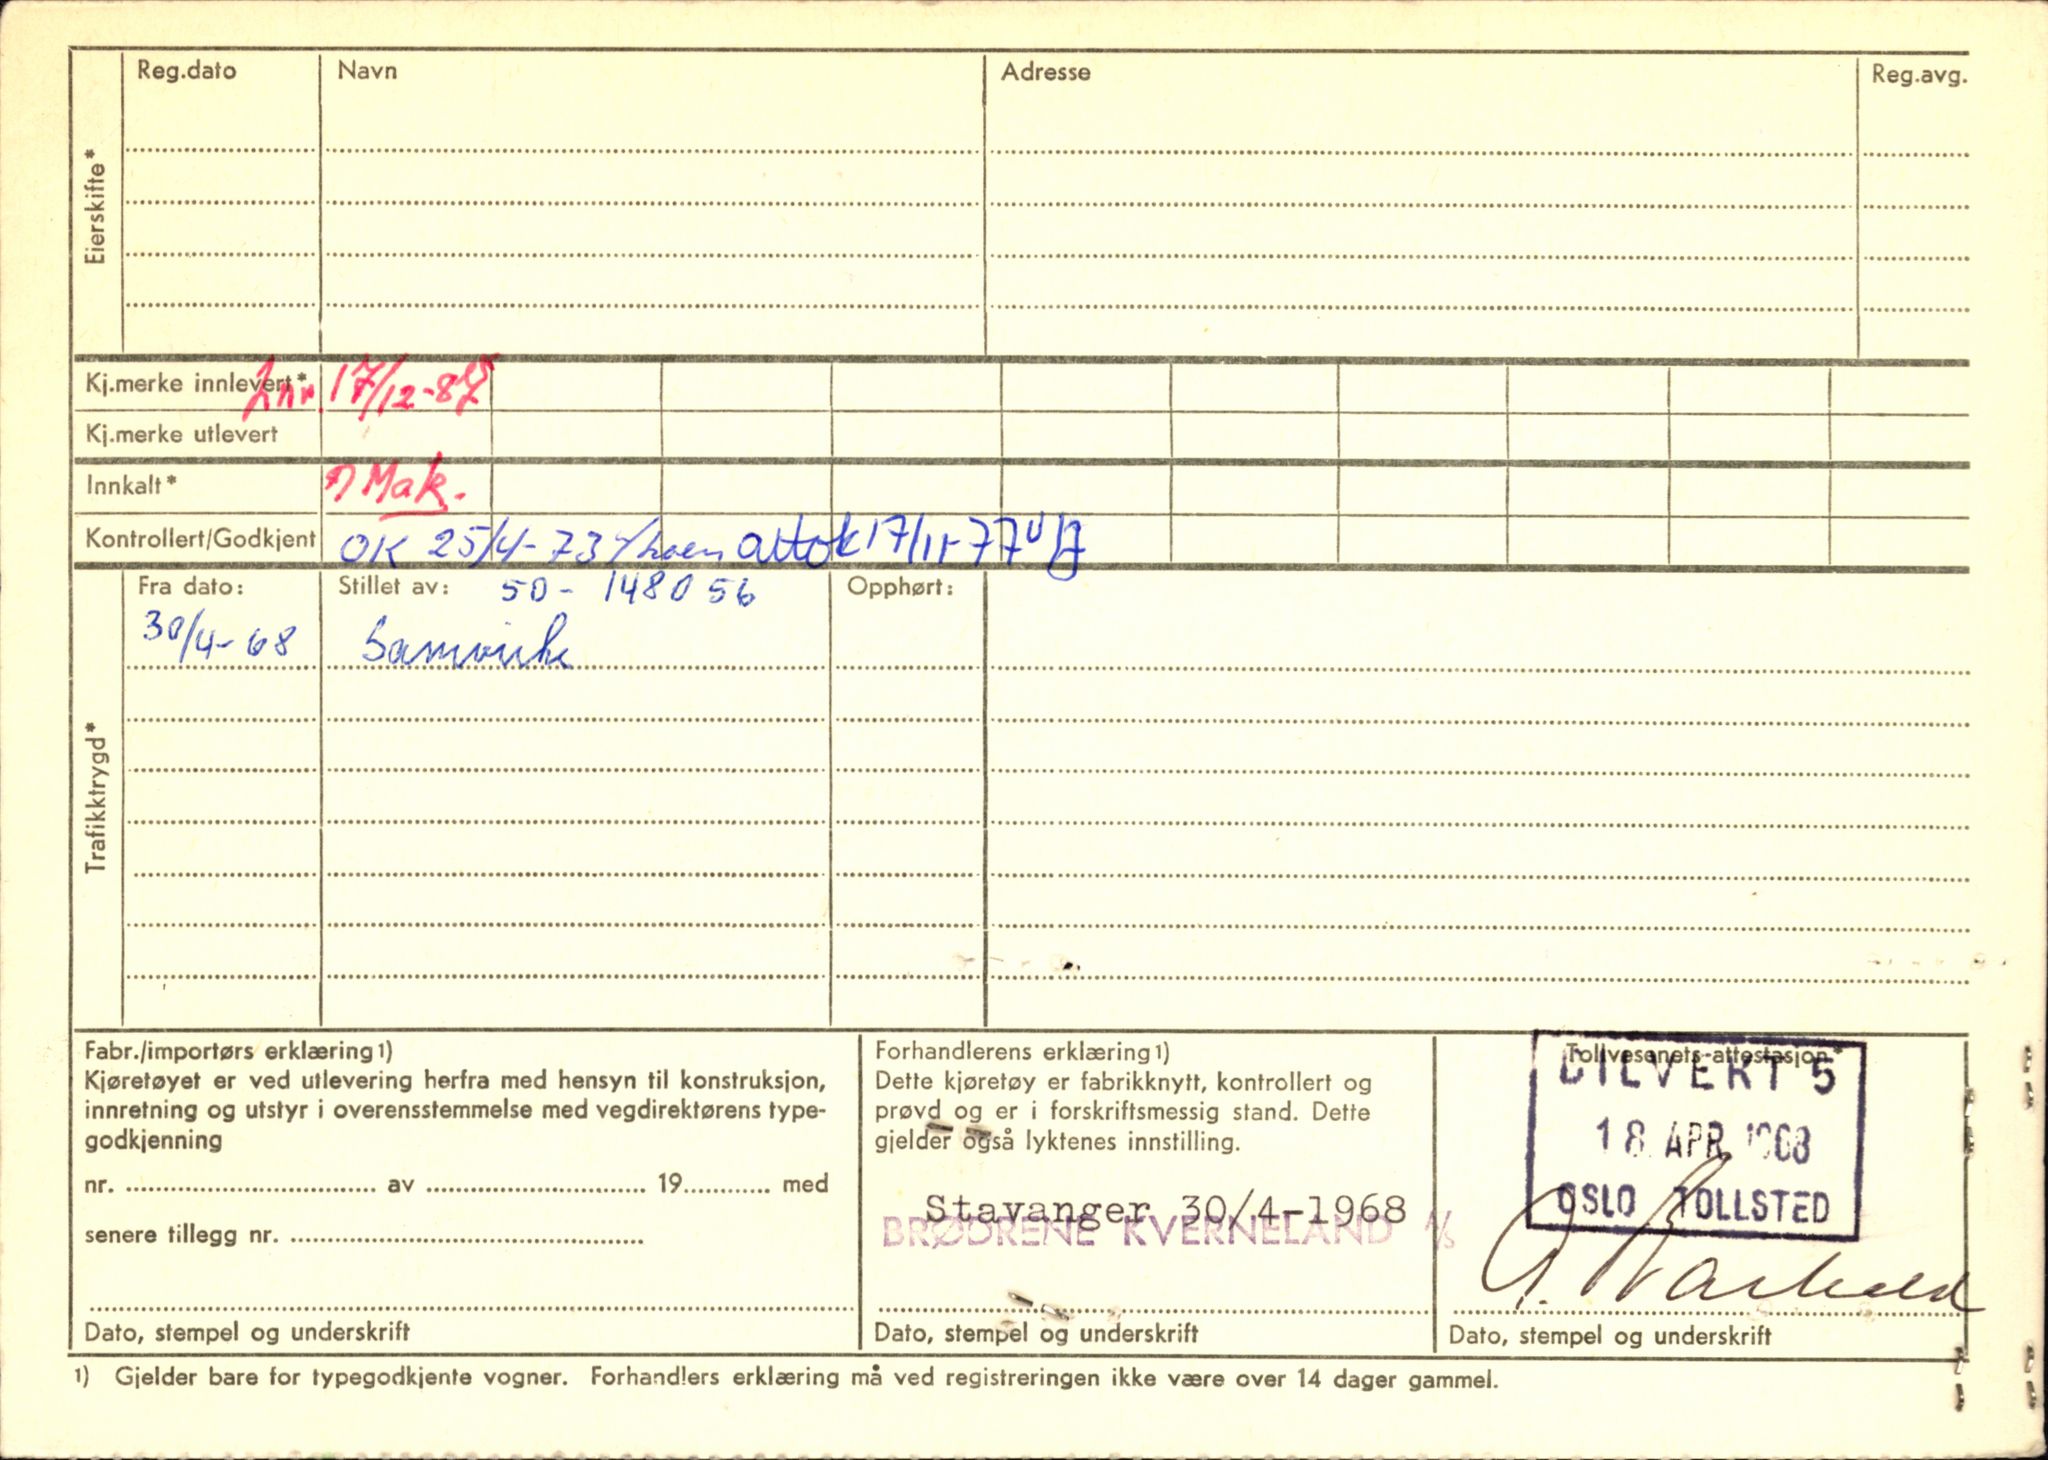 Reg.dato Navn Adresse Reg.avg.
Eierskifte*
Kj.merke innlevert* 17/12-85
Kj.merke utlevert
Innkalt* Mak.
Kontrollert/Godkjent OK 25/4-73 17/11-77
Fra dato: Stillet av: 50-148056 Opphørt:
30/4-68 Samvirke
Trafikktrygd*
Fabr./importørs erklæring 1)
Kjøretøyet er ved utlevering herfra med hensyn til konstruksjon,
innretning og utstyr i overensstemmelse med vegdirektørens type-
godkjenning
nr. av 19 med
senere tillegg nr.
Dato, stempel og underskrift
Forhandlerens erklæring 1)
Dette kjøretøy er fabrikknytt, kontrollert og
prøvd og er i forskriftsmessig stand. Dette
gjelder også lyktenes innstilling.
Stavanger 30/4-1968
BRØDRENE KVERNELAND A/S
Dato, stempel og underskrift
Tollvesenets attestasjon*
BILVERT 5
18 APR 1968
OSLO TOLLSTED
Dato, stempel og underskrift
1) Gjelder bare for typegodkjente vogner. Forhandlers erklæring må ved registreringen ikke være over 14 dager gammel.